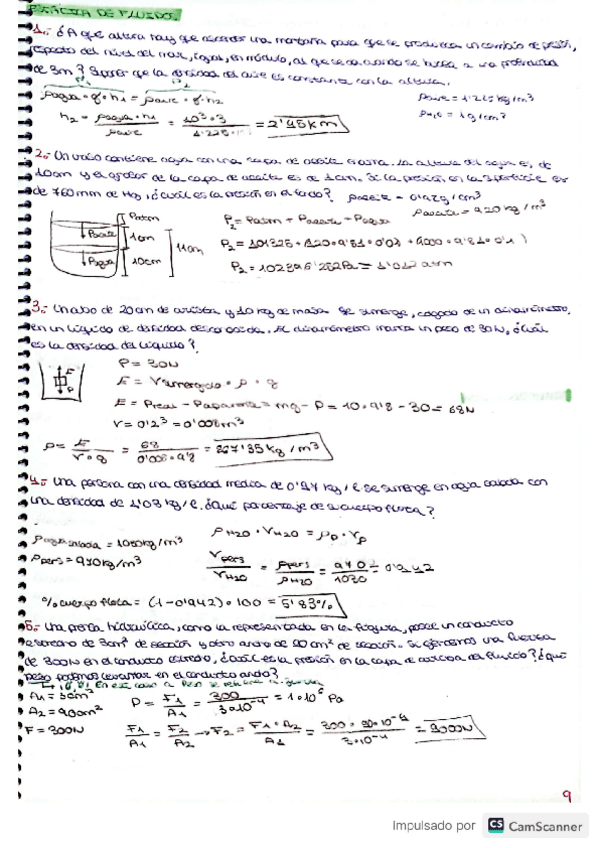 PRÁCTICA DE FLUIDOS.
1.- ¿A qué altura hay que ascender una montaña para que se produzca un cambio de presión,
respecto del nivel del mar, igual, en módulo, al que se da cuando se baja a una profundidad
de 3m? Suponer que la densidad del aire es constante con la altura.
ρagua · g · h1 = ρaire · g · h2
ρaire = 1'225 kg/m3
h2 = ρagua · h1 / ρaire = 10^3 · 3 / 1.225 = 2'45 km
2.- Un vaso contiene agua con una capa de aceite encima. La altura del agua es de
10cm y el grosor de la capa de aceite es de 1cm. Si la presión en la superficie es
de 760 mm de Hg, ¿cuál es la presión en el fondo?
ρaceite = 0'92 g/cm3
ρaceite = 920 kg/m3
Patm
Paceite
1cm
11cm
Pagua
10cm
P2 = Patm + Paceite - Pagua
P2 = 102396'252 Pa = 1'012 atm
3.- Un cubo de 20cm de arista y 10kg de masa se sumerge, colgado de un dinamómetro,
en un líquido de densidad desconocida. El dinamómetro marca un peso de 30N, ¿Cuál
es la densidad del líquido?
P = 30N
E
P
E = Vsumergido · ρ · g
E = Preal - Paparente = mg - P = 10 · 9'8 - 30 = 68N
V = 0'2^3 = 0'008m3
ρ = E / V · g = 68 / 0'008 · 9'8 = 867'35 kg/m3
4.- Una persona con una densidad media de 0'97 kg/l se sumerge en agua salada con
una densidad de 1'03 kg/l. ¿Qué porcentaje de su cuerpo flota?
ρpers = 970kg/m3
ρH2O · VH2O = ρp · Vp
Vpers / VH2O = ρpers / ρH2O = 970 / 1030 = 0'942
% cuerpo flota = (1 - 0'942) · 100 = 5'83%
5.- Una prensa hidráulica, como la representada en la figura, posee un conducto
estrecho de 3cm2 de sección y otro ancho de 90 cm2 de sección. Si ejercemos una fuerza
de 300N en el conducto estrecho, ¿cuál es la presión en la capa de
¿qué
peso podemos levantar en el conducto ancho?
A1 = 3cm2
A2 = 90cm2
F = 300N
P = F1 / A1 = 300 / 3·10^-4 = 1·10^6 Pa
F1 / A1 = F2 / A2 → F2 = F1 · A2 / A1 = 300 · 90·10^-4 / 3·10^-4 = 9000N
9
Impulsado por CS CamScanner